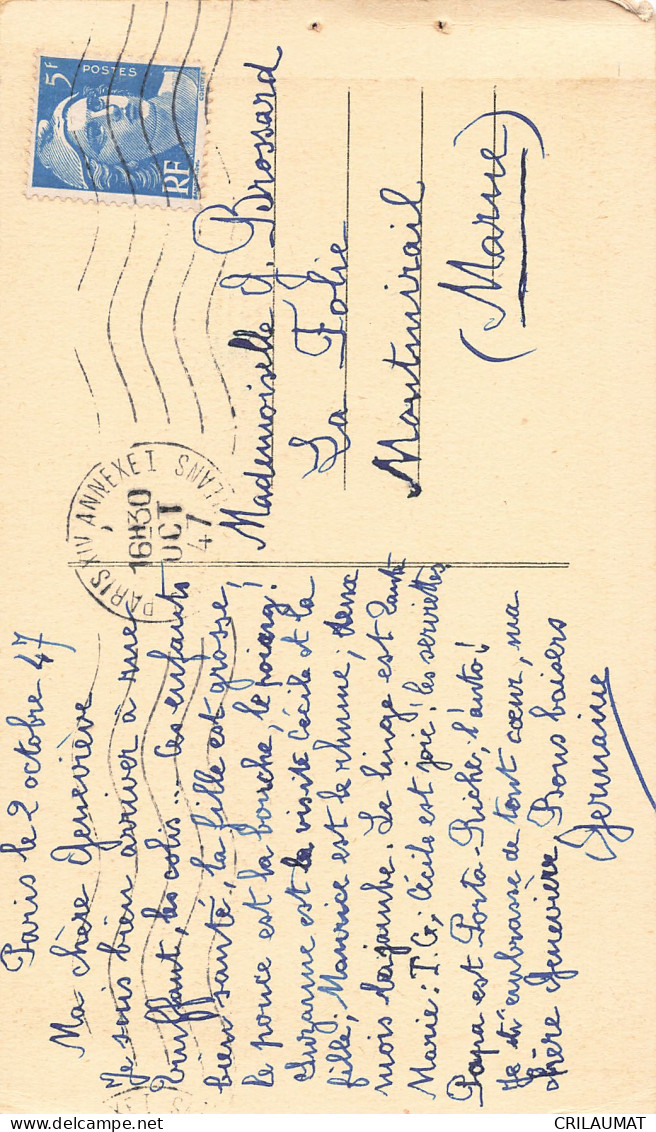 Paris le 2 octobre 47
Ma chère Geneviève
Je suis bien arriver à rue
Ruffaut, les colis... Les enfants
bien santé, la fille est grosse,
le pouce est la bouche, le poing!
Suzanne est la visite Cécile et la
fille, Maurice est le rhume, deux
mois la jambe. Le linge est
Marie: T.G, Cécile est joie, les serviettes
Papa est Porta-Riche, l'auto!
Je t'embrasse de tout cœur, ma
chère Geneviève, Bons baisers
Germaine
5F
POSTES
RF
PARIS XIV ANNEXE I
16H30
OCT
47
Mademoiselle G. Brossard
La Folie
Montmirail
(Marne)
CRILAUMAT